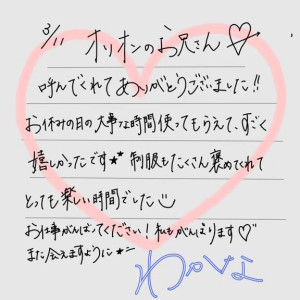 3/11 オリオンのお兄さん♡
呼んでくれてありがとうございました!!
お休みの日の大事な時間使ってもらえて、すごく
嬉しかったです★* 制服もたくさん褒めてくれて
とっても楽しい時間でした
お仕事がんばってください!私もがんばります♡
また会えますように*
わかな